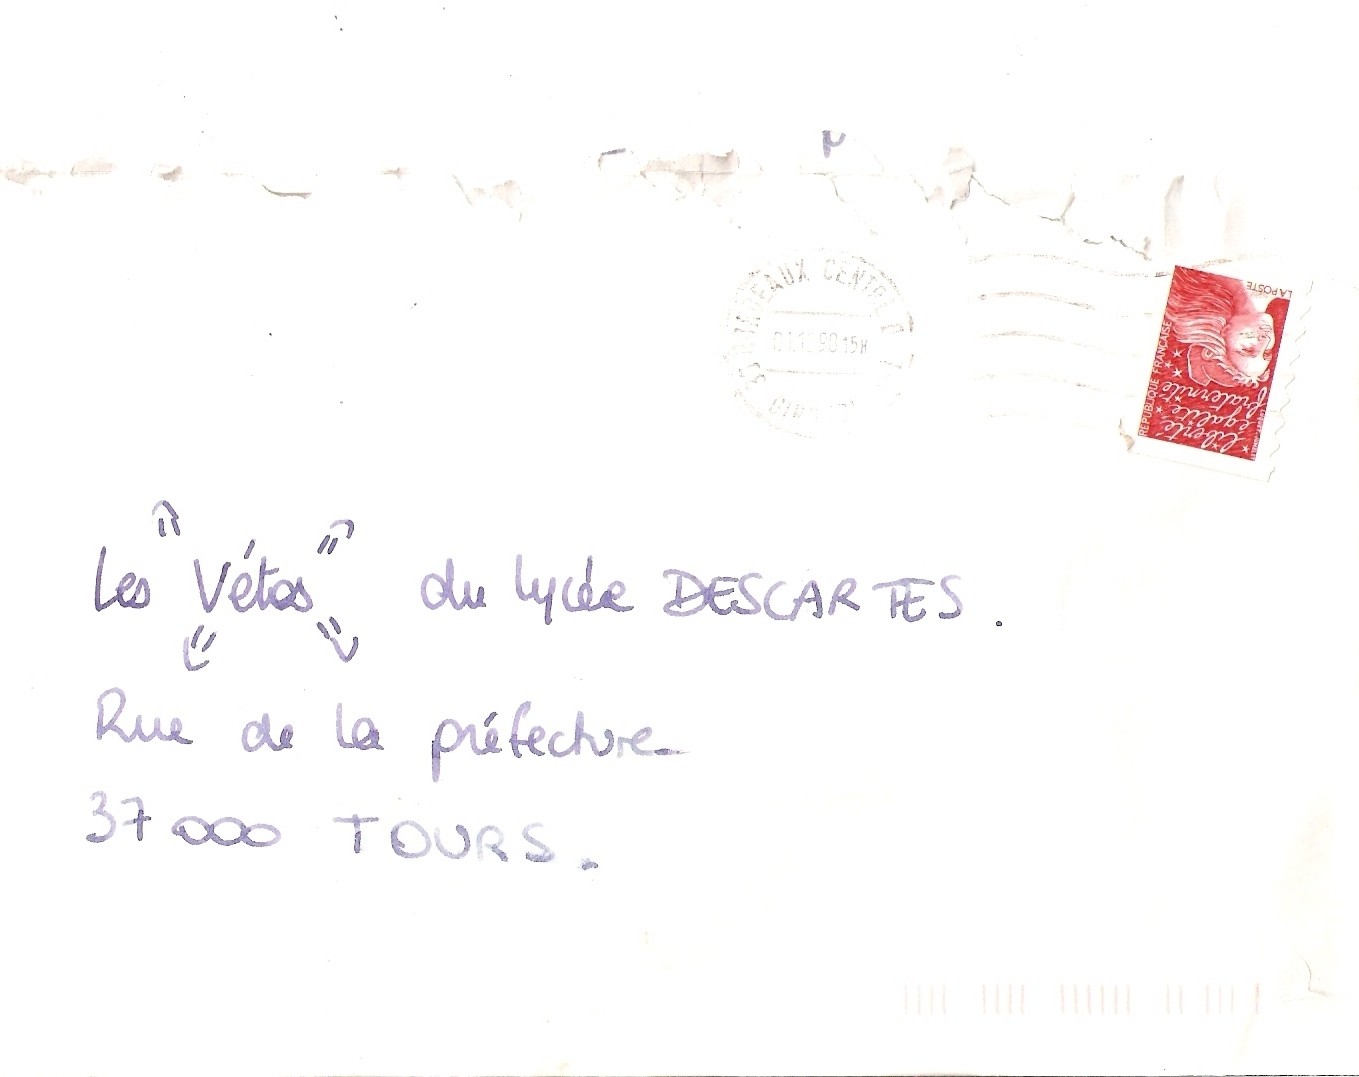 BORDEAUX CENTRE
98 15H
GIRONDE
LA POSTE
REPUBLIQUE FRANÇAISE
liberté
égalité
fraternité
Les "Vétos" du lycée DESCARTES.
Rue de la préfecture
37000 TOURS.